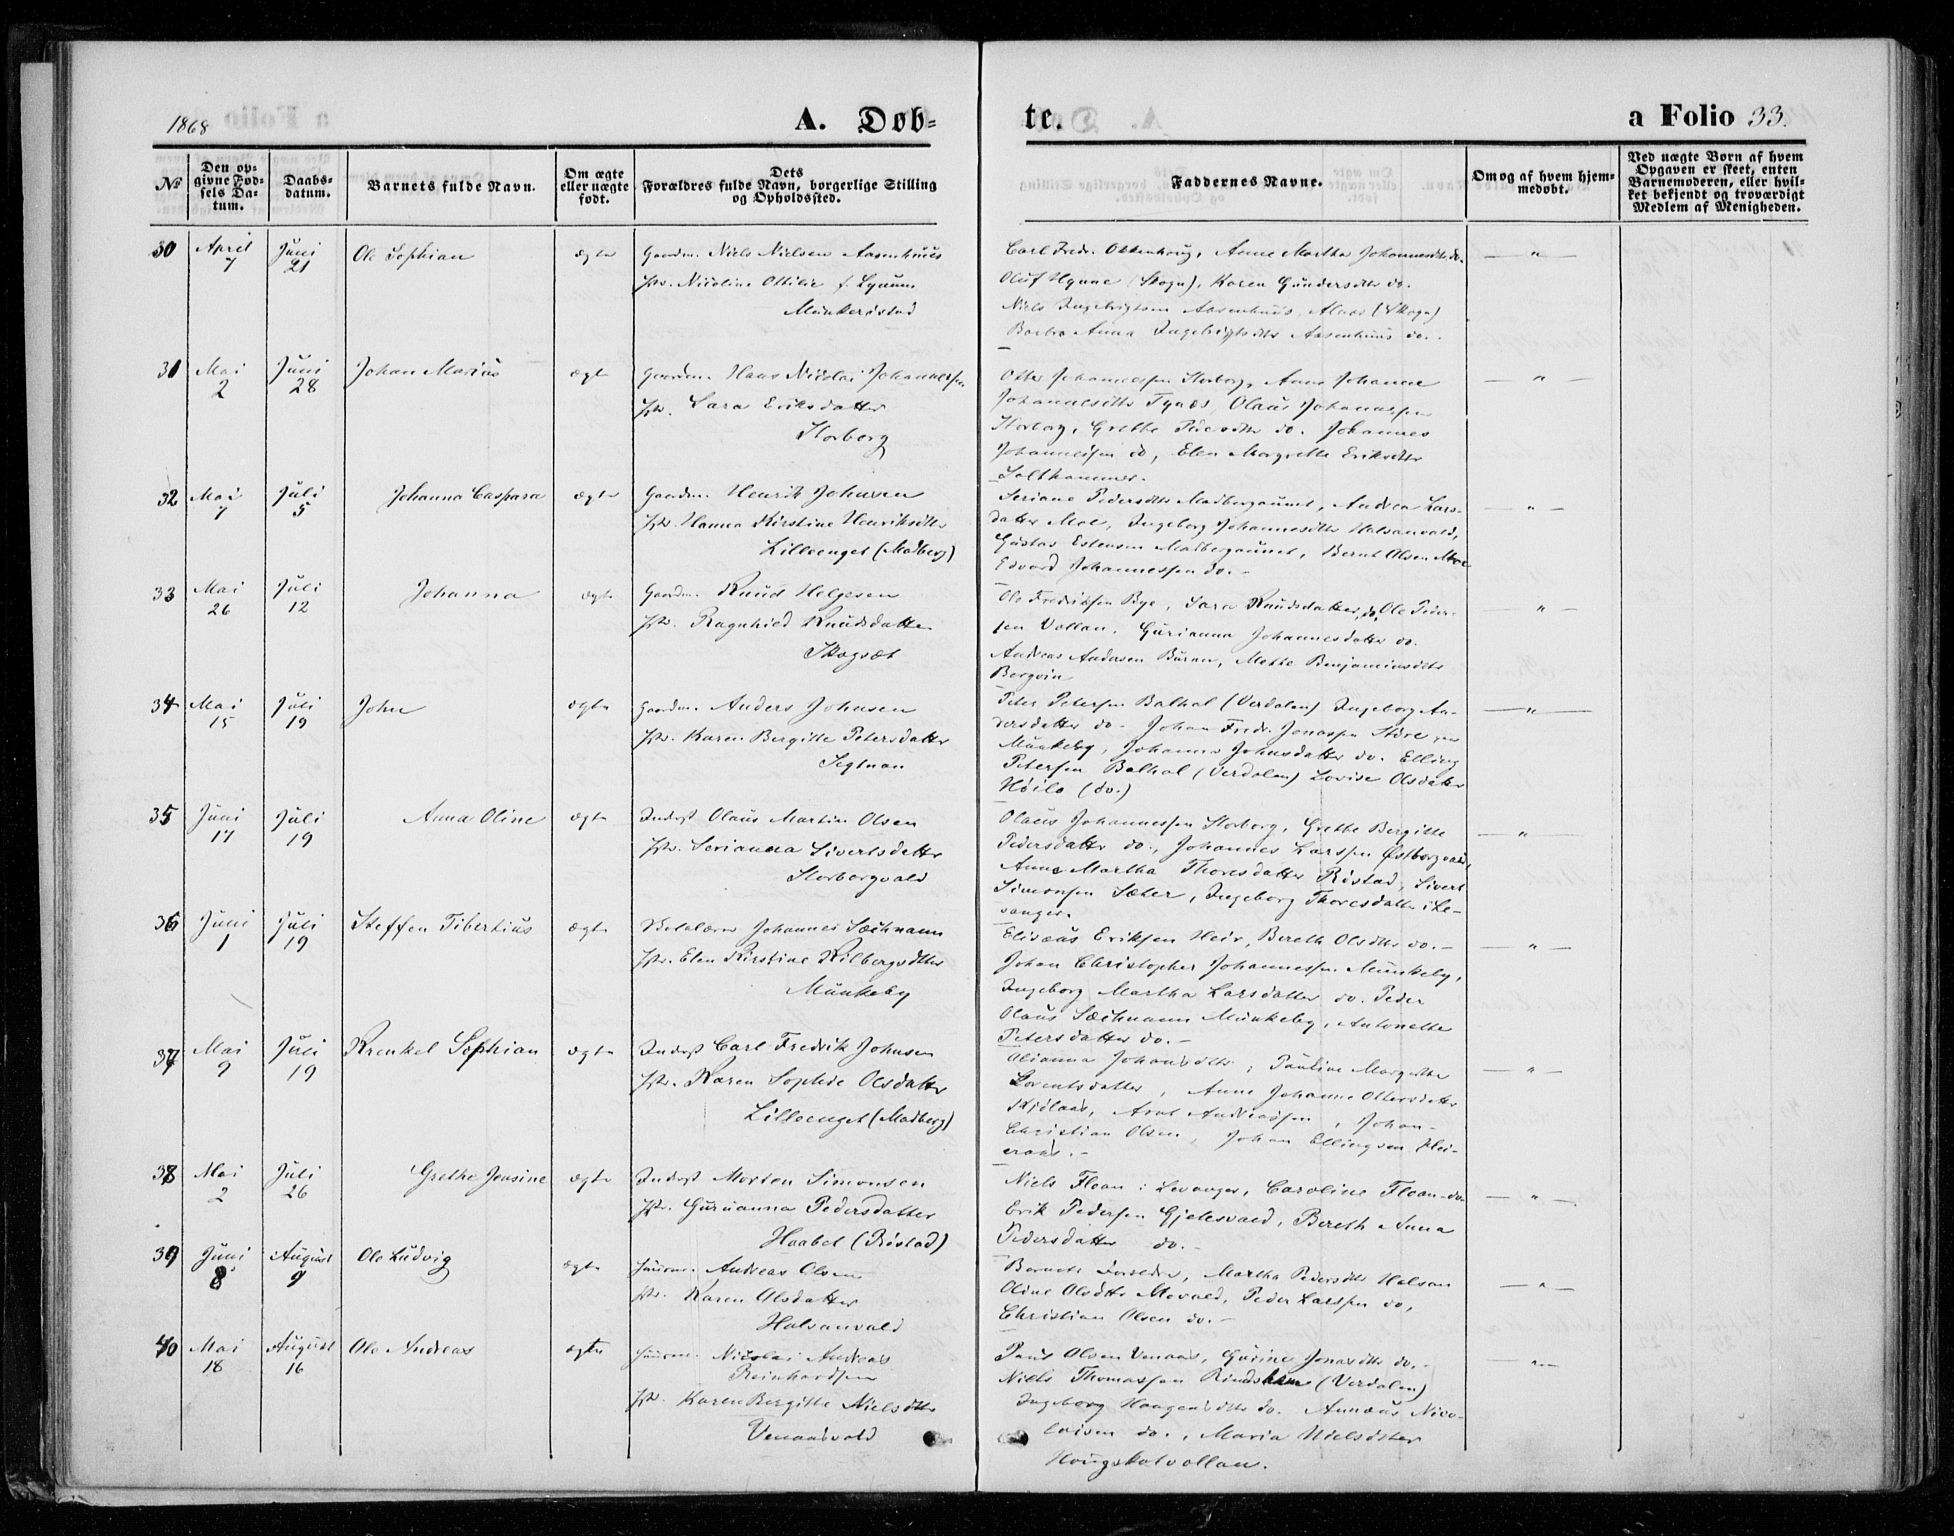 1868
A. Døb-
te.
a Folio 33.
No
Den op-
givne Fød-
sels Da-
tum.
Daabs-
datum.
Barnets fulde Navn.
Om ægte
eller uægte
født.
Dets
Forældres fulde Navn, borgerlige Stilling
og Opholdssted.
Faddernes Navne.
Om og af hvem hjem-
medøbt.
Ved uægte Børn af hvem
Opgaven er skeet, enten
Barnemoderen, eller hvil-
ket bekjendt og troværdigt
Medlem af Menigheden.
30 April 7 Juni 21 Ole Sophian ægte Gaardm. Niels Nielsen Aasenhuus
Nicoline Ottilie f. Lynum
Munkerøstad
Carl Fredr. Ottenhoug, Anne Martha Johannesdtr do.
Oluf Hynne (Skogn), Karen Gundersdtr do.
Niels Ingebrigtsen Aasenhuus, (Skogn)
Anna Ingebrigtsdtr Aasenhuus do.
— " —
31 Mai 2 Juni 28 Johan Marius ægte Gaardm. Hans Nicolai Johannessen
Sara Eriksdatter
Storborg
Otter Johannessen Storborg, Anne Johanne
Johannesdtr Tynes, Olaus Johannessen
Storborg, Grethe Pedersdtr do. Johannes
Johannessen do, Elen Margrethe Eriksdtr
Salthammer.
— " —
32 Mai 7 Juli 5 Johanna Caspara ægte Gaardm. Henrik Johnsen
Hanna Kirstine Henriksdtr
Lilleenget (Madberg)
Seriane Pedersdtr Madbergaunet, Andrea Lars-
datter Moe, Ingeborg Johannesdtr Halsanvald,
Gustav Estensen Madbergaunet, Bernt Olsen Moe
Edvard Johannessen do. -
— " —
33 Mai 26 Juli 12 Johanna ægte Gaardm. Knud Helgesen
Ragnhild Knudsdatter
Skogset
Ole Fredriksen Bye, Sara Knudsdatter do, Ole Peder-
sen Vollan, Gurianna Johannesdatter do.
Andreas Andersen Buran, Mette Benjaminsdtr
Bergvin
— " —
34 Mai 15 Juli 19 John ægte Gaardm. Anders Johnsen
Karen Bergitte Petersdatter
Segtnan
Peter Petersen Balhal (Verdalen) Ingeborg An-
dersdatter do. Johan Fredr. Jonassen
Munkeby, Johanna Johnsdatter do. Elling
Petersen Balhal (Verdalen) Lovise Olsdatter
Høilo (do.)
— " —
35 Juni 17 Juli 19 Anna Oline ægte Inderst Olaus Martin Olsen
Serianna Sivertsdatter
Storborgvald
Olaus Johannessen Storborg, Grethe Bergitte
Pedersdatter do., Johannes Larssen Østborgvald,
Anne Martha Thoresdatter Røstad, Sivert
Simonsen Sæter, Ingeborg Thoresdatter i Le-
vanger.
— " —
36 Juni 1 Juli 19 Steffen Tibertius ægte Skolelærer Johannes Sæchnann
Elen Kirstine Kilbergsdtr
Munkeby
Elisæus Eriksen Heir, Bereth Olsdtr do. -
Johan Christopher Johannessen Munkeby,
Ingeborg Martha Larsdatter do. Peder
Olaus Sæchnann Munkeby, Antonette
Petersdatter do. -
— " —
37 Mai 9 Juli 19 Krenkel Sophian ægte Inderst Carl Fredrik Johnsen
Karen Sophie Olsdatter
Lilleenget (Madberg)
Olianna Johansdtr, Pauline Margrethe
Lorentsdatter, Anne Johanne Ottersdatter
Andreassen, Johan
Christian Olsen, Johan Ellingsen
— " —
38 Mai 2 Juli 26 Grethe Jensine ægte Inderst Morten Simonsen
Gurianna Pedersdatter
Haabet (Røstad)
Niels Floan i Levanger, Caroline Floan do
Erik Pedersen Gjelesvald, Bereth Anna
Pedersdatter do. -
— " —
39 Juni 8 August 9 Ole Ludvig ægte Huusm. Andreas Olsen
Karen Olsdatter
Halsanvald
Barnets Forældre, Martha Pedersdtr Halsan
Oline Olsdtr Movald, Peder Larssen do,
Christian Olsen do. -
— " —
40 Mai 18 August 16 Ole Andreas ægte Huusm. Nicolai Andreas
Reinhardsen
Karen Bergitte Nielsdtr
Venaasvald
Paul Olsen Venaas, Gurine Jonasdtr do. -
Niels Thomassen (Verdalen)
Ingeborg Haagensdtr do. Annæus Nico-
laisen do., Maria Nielsdtr
Hougskotvollan.
— " —